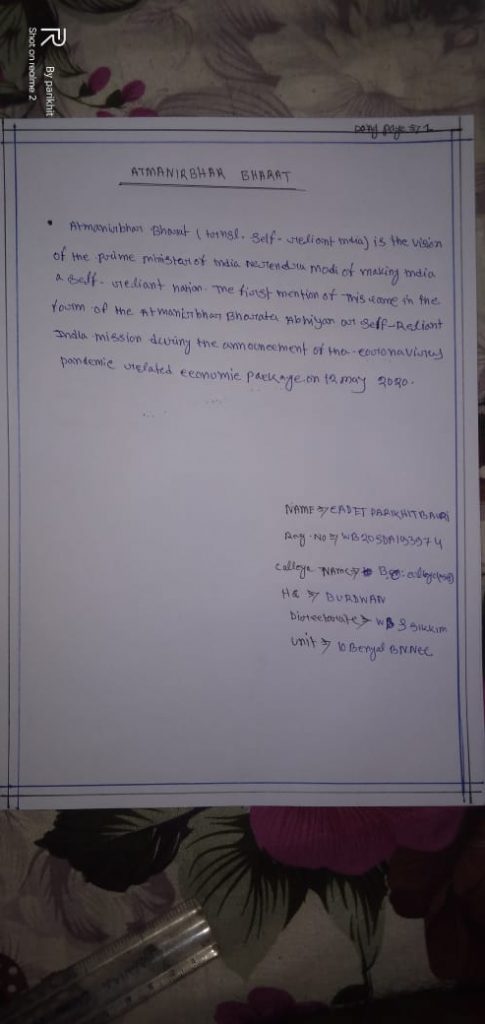 By parikhit
Shot on realme 2
page ⇒ 1
ATMANIRBHAR BHARAT
• Atmanirbhar Bharat ( self-reliant india) is the vision
of the prime minister of india Narendra modi of making india
a self-reliant nation. The first mention of This came in the
form of the Atmanirbhar Bharata Abhiyan or Self-Reliant
India mission during the announcement of the coronavirus
pandemic related economic package on 12 may 2020.
NAME ⇒ CADET PARIKHIT BAURI
Reg. No ⇒ WB20SDA193974
College NAME ⇒ B.
HQ ⇒ BURDWAN
Directorate ⇒ WB & Sikkim
unit ⇒ 10 Bengal BN NCC